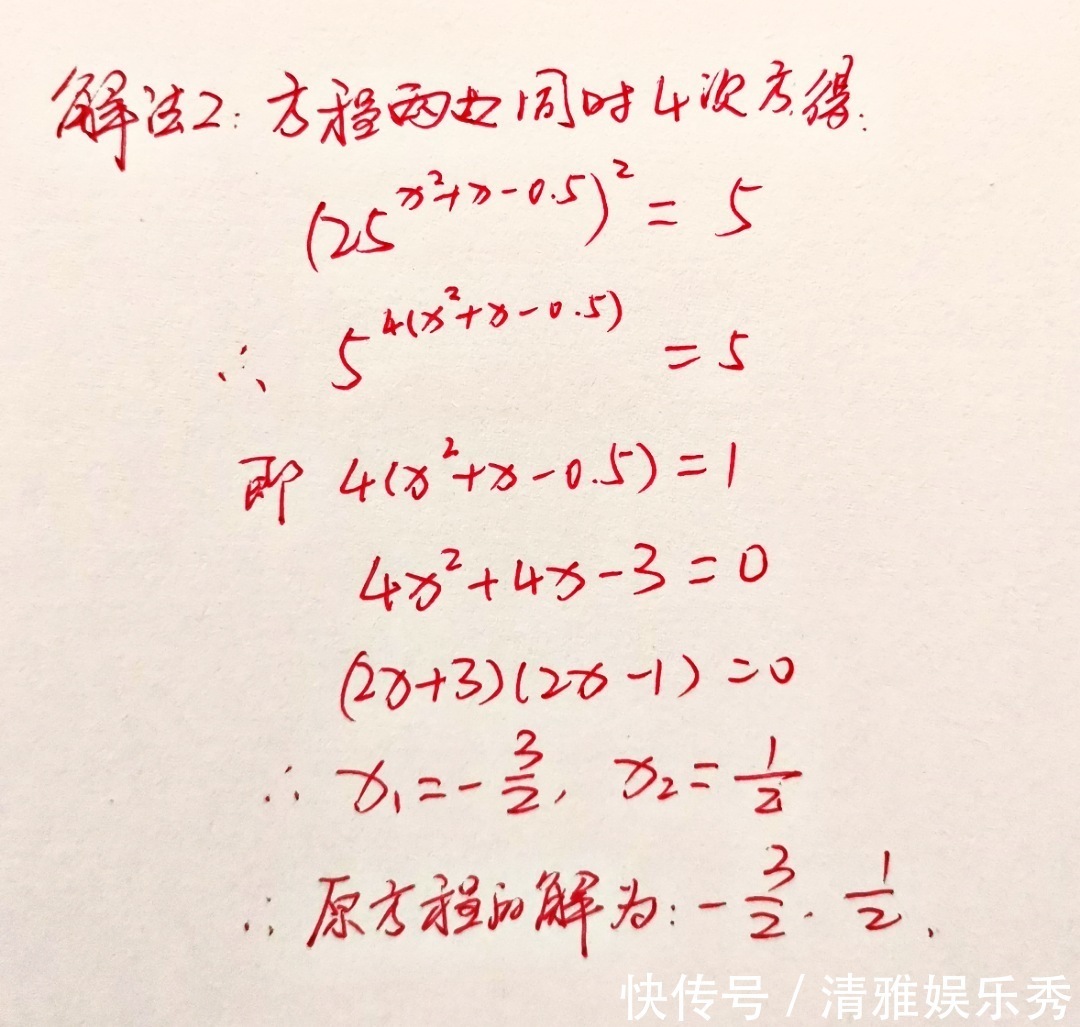 解法2:方程两边同时4次方得:
(25^{x²+x-0.5})² = 5
∴ 5^{4(x²+x-0.5)} = 5
即 4(x²+x-0.5)=1
4x²+4x-3=0
(2x+3)(2x-1)=0
∴ x₁=-3/2, x₂=1/2
∴ 原方程的解为:-3/2. 1/2.
快传号 / 清雅娱乐秀